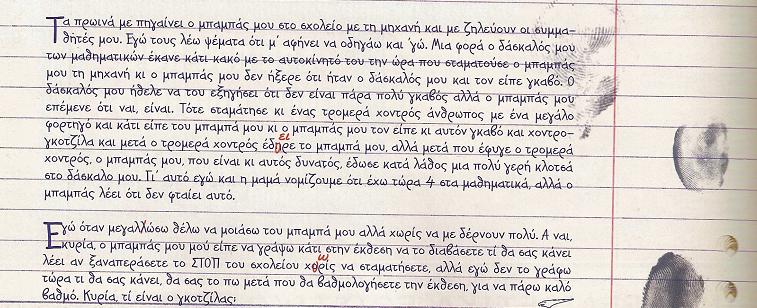 Τα πρωινά με πηγαίνει ο μπαμπάς μου στο σχολείο με τη μηχανή και με ζηλεύουν οι συμμα-
θητές μου. Εγώ τους λέω ψέματα ότι μ' αφήνει να οδηγάω και 'γώ. Μια φορά ο δάσκαλός μου
των μαθηματικών έκανε κάτι κακό με το αυτοκίνητό του την ώρα που σταματούσε ο μπαμπάς
μου τη μηχανή κι ο μπαμπάς μου δεν ήξερε ότι ήταν ο δάσκαλός μου και τον είπε γκαβό. Ο
δάσκαλός μου ήθελε να του εξηγήσει ότι δεν είναι πάρα πολύ γκαβός αλλά ο μπαμπάς μου
επέμενε ότι ναι, είναι. Τότε σταμάτησε κι ένας τρομερά χοντρός άνθρωπος με ένα μεγάλο
φορτηγό και κάτι είπε του μπαμπά μου κι ο μπαμπάς μου τον είπε κι αυτόν γκαβό και χοντρο-
γκοτζίλα και μετά ο τρομερά χοντρός έδηρε το μπαμπά μου, αλλά μετά που έφυγε ο τρομερά
χοντρός, ο μπαμπάς μου, που είναι κι αυτός δυνατός, έδωσε κατά λάθος μια πολύ γερή κλοτσά
στο δάσκαλο μου. Γι' αυτό εγώ και η μαμά νομίζουμε ότι έχω τώρα 4 στα μαθηματικά, αλλά ο
μπαμπάς λέει ότι δεν φταίει αυτό.
Εγώ όταν μεγαλλώσω θέλω να μοιάσω του μπαμπά μου αλλά χωρίς να με δέρνουν πολύ. Α ναι,
κυρία, ο μπαμπάς μου μού είπε να γράψω κάτι στην έκθεση να το διαβάσετε τί θα σας κάνει
λέει αν ξαναπεράσετε το ΣΤΟΠ του σχολείου χορίς να σταματήσετε, αλλά εγώ δεν το γράφω
τώρα τι θα σας κάνει, θα σας το πω μετά που θα βαθμολογήσετε την έκθεση, για να πάρω καλό
βαθμό. Κυρία, τί είναι ο γκοτζίλας;